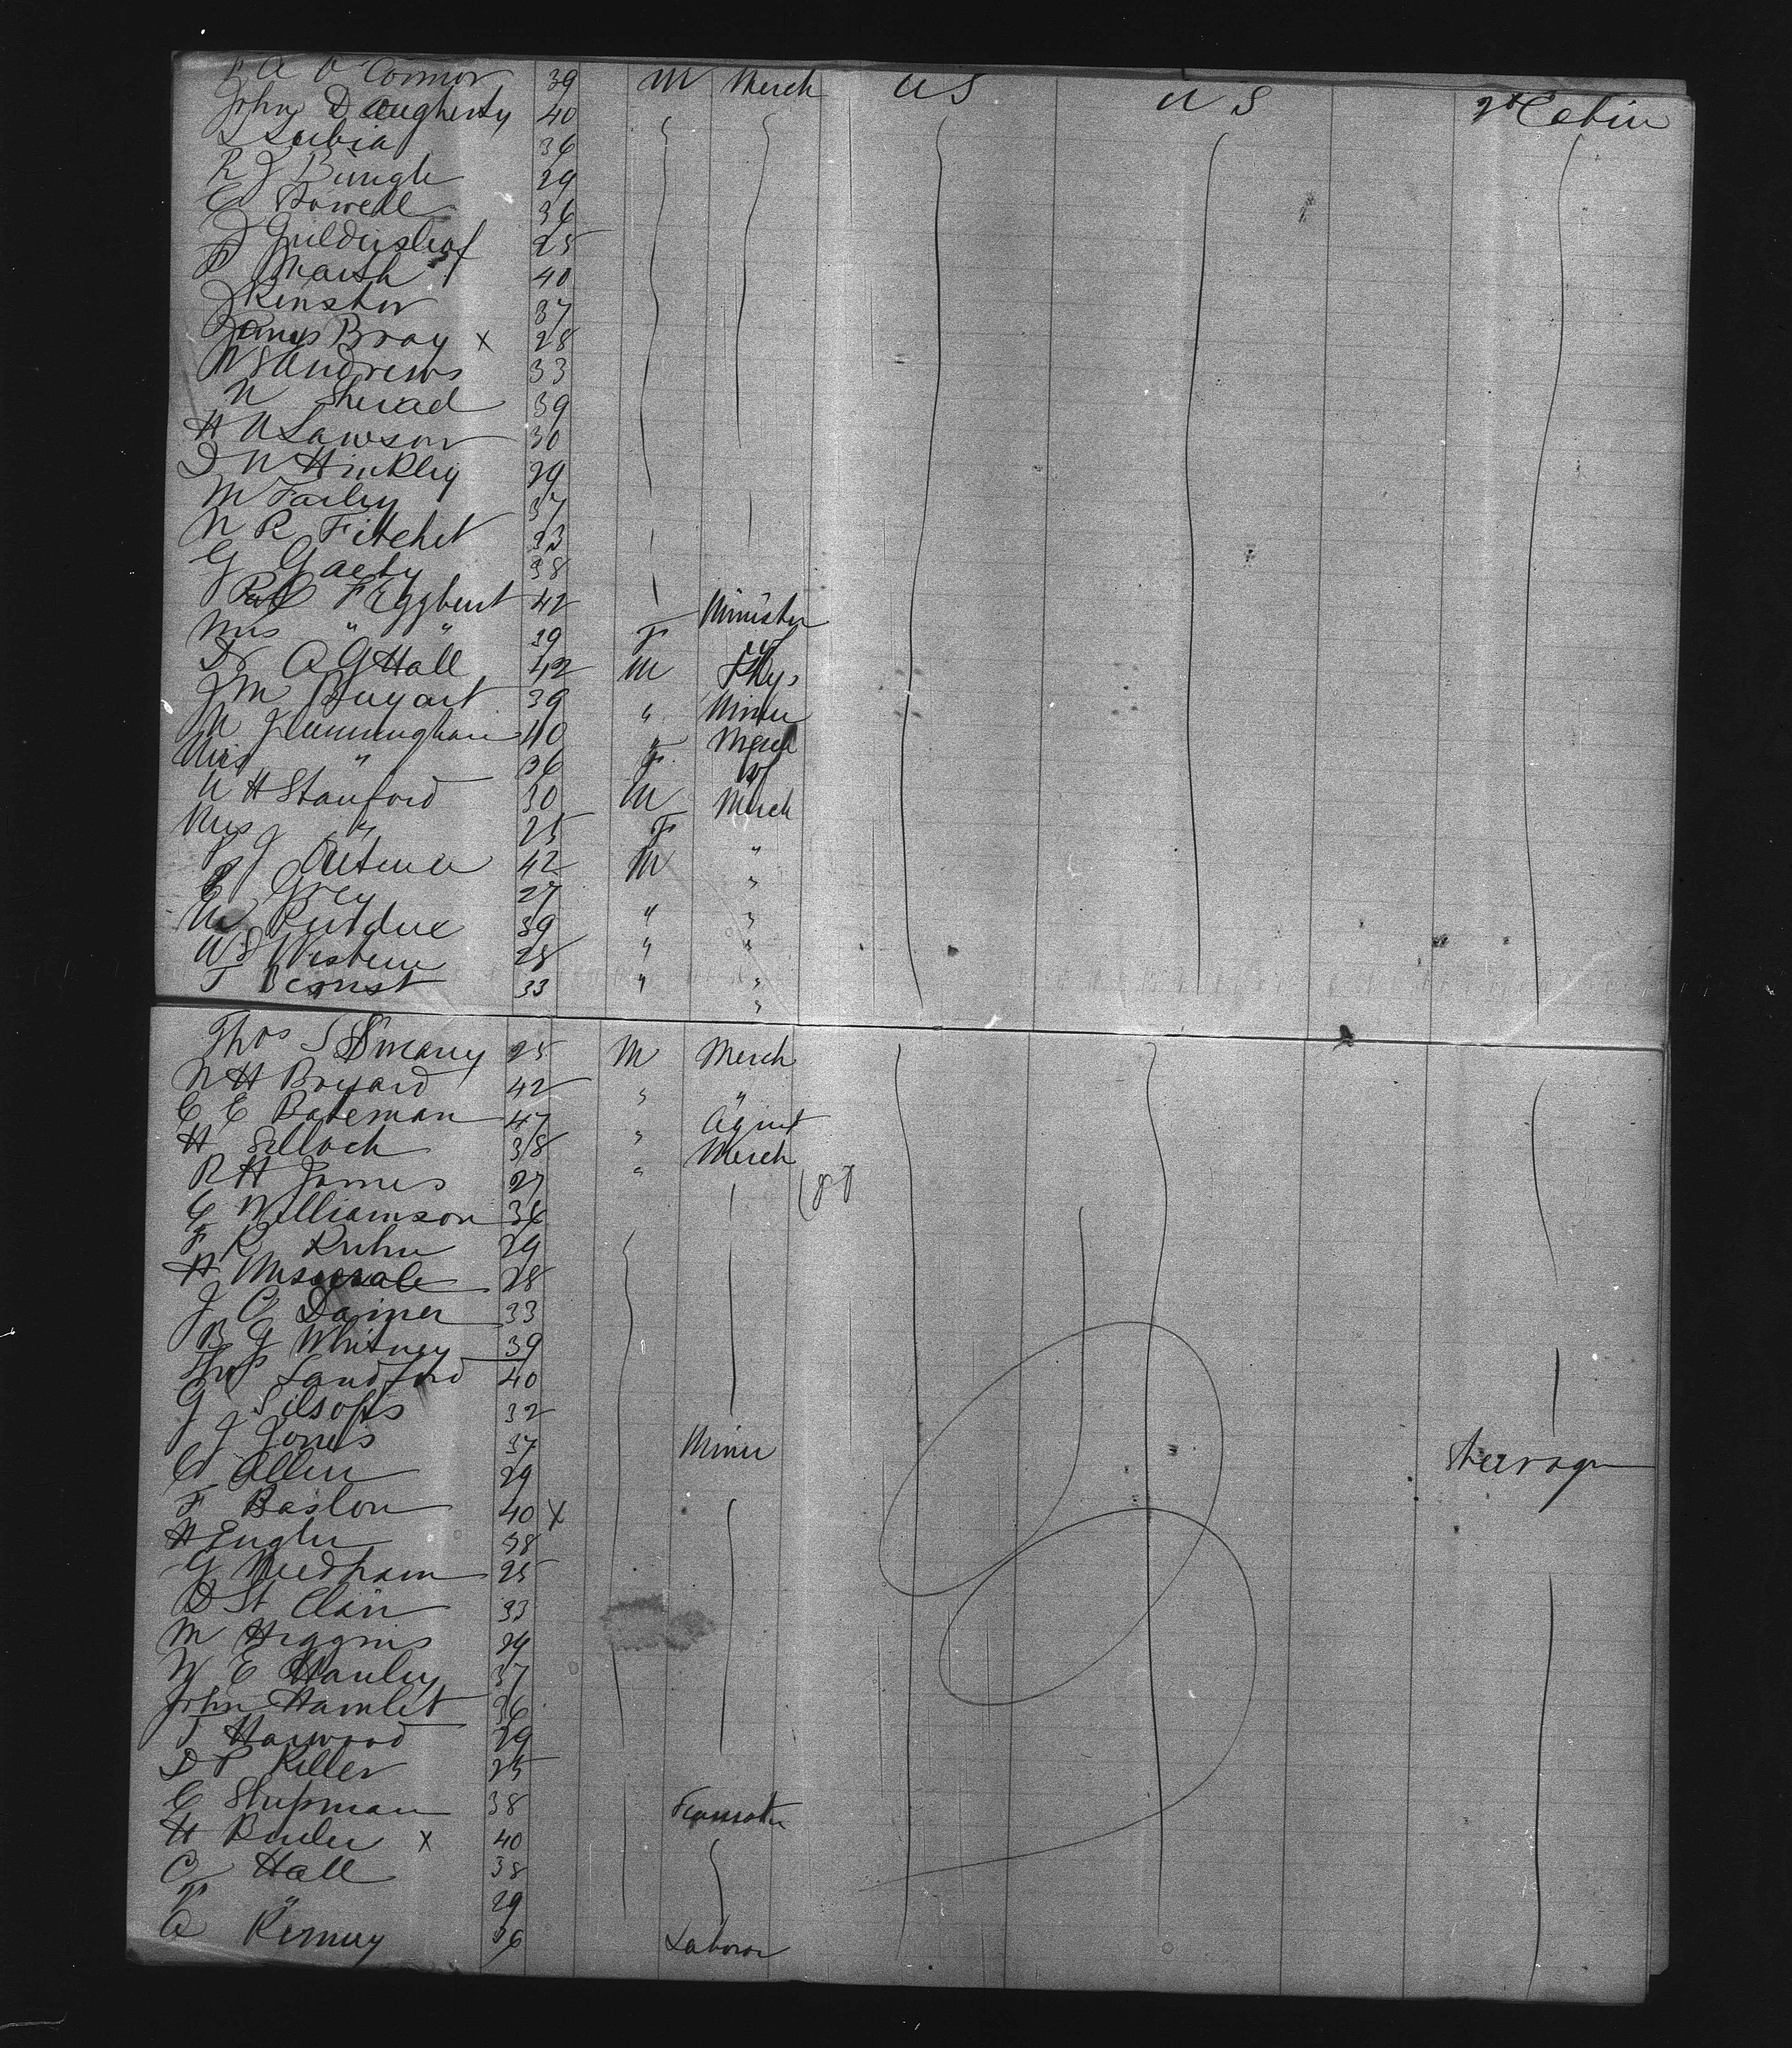 A O'Connor 39 M Merch US US 2d Cabin
John Daugherty 40
L Lubia 36
R J Bungle 29
C Powell 36
J Guildersleaf 25
P Marsh 40
J Renster 37
James Bray x 28
W S Andrews 33
W Sherad 39
H A Lawson 30
D W Hinkley 29
M Farley 37
W R Fitchet 33
G Gaety 38
F Eggbert 42 Minister
Mrs " " 39 F wf
Dr A G Hall 42 M Phys
J M Bugart 39 " Miner
W J Cunningham 40 " Merch
Mrs " 36 F wf
W H Stanford 30 M Merch
Mrs " 25 F "
P J 42 M "
Grey 27 "
W Purdue 39 " "
W S Western 28 " "
T 33 " "
Thos S Sweany 25 M Merch
W H Boyard 42 " "
C E Bateman 47 " Agent
H Selloch 38 " Merch
R H James 27 "
G Williamson 36
F R Kuhn 29
H 28
J C Damer 33
B G Whitney 39
Thos Sandford 40
G Silsofts 32
J J Jones 37 Miner Steerage
C Allen 29
F Baslow 40 x
H Engler 38
G Needham 25
D St Clair 33
M Higgins 29
W E Hanley 37
John Hamlet 36
T Harwood 29
D P Keller 25
C Shipman 38 Teamster
H Butler x 40
C Hall 38
F " 29
A Kernuy 36 Laborer